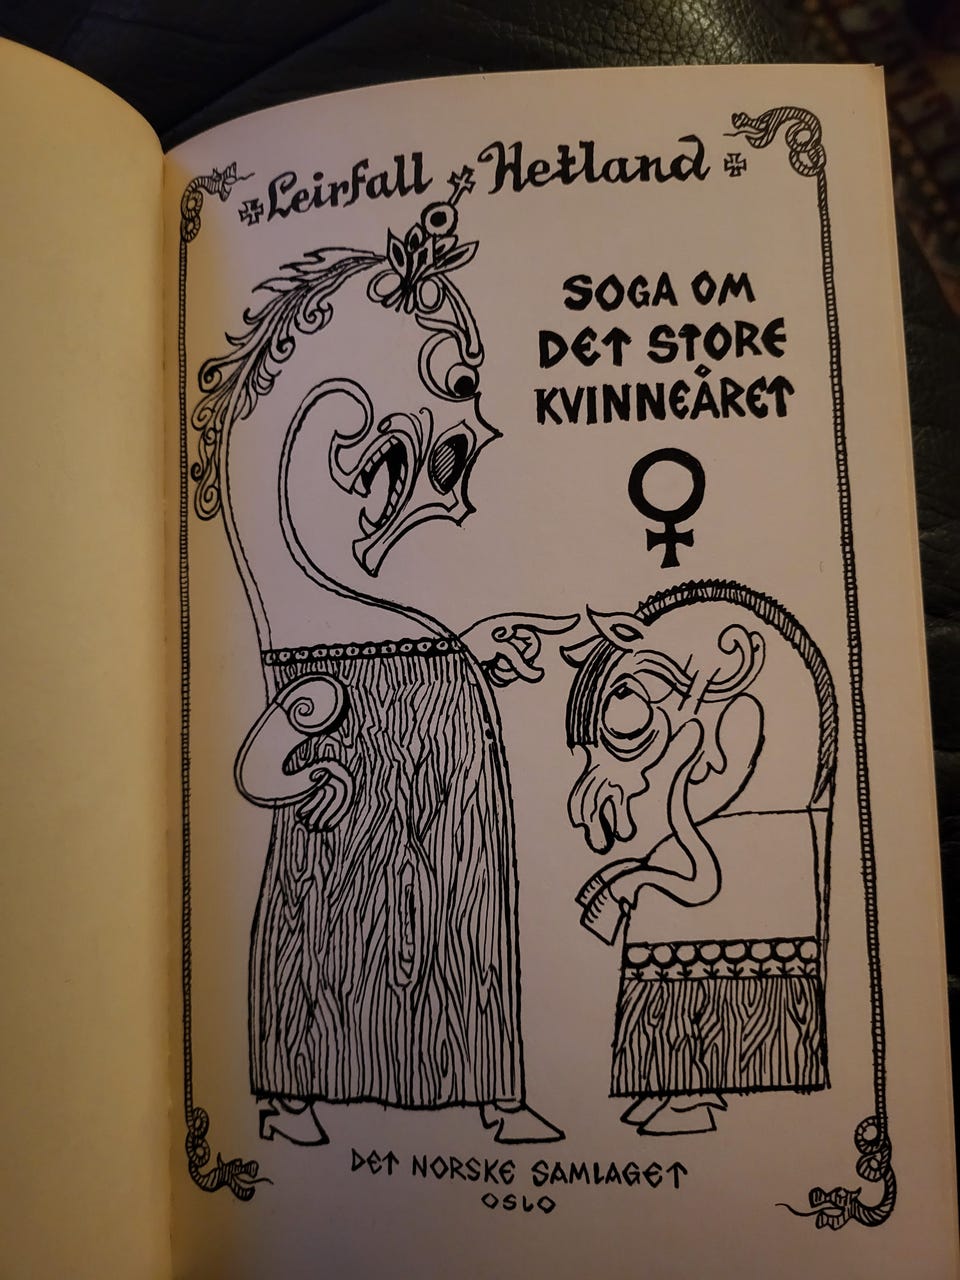 Leirfall Hetland
SOGA OM
DET STORE
KVINNEÅRET
DET NORSKE SAMLAGET
OSLO